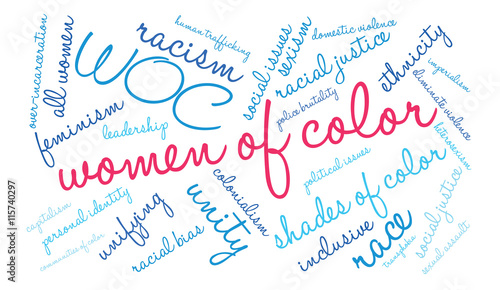 over-incarceration
all women
feminism
WOC
racism
human trafficking
leadership
social issues
sexism
racial justice
domestic violence
police brutality
ethnicity
imperialism
eliminate violence
heterosexism
women of color
capitalism
personal identity
communities of color
unifying
racial bias
unity
colonialism
political issues
shades of color
inclusive
race
transphobia
social justice
sexual assault
Adobe Stock
#115740297